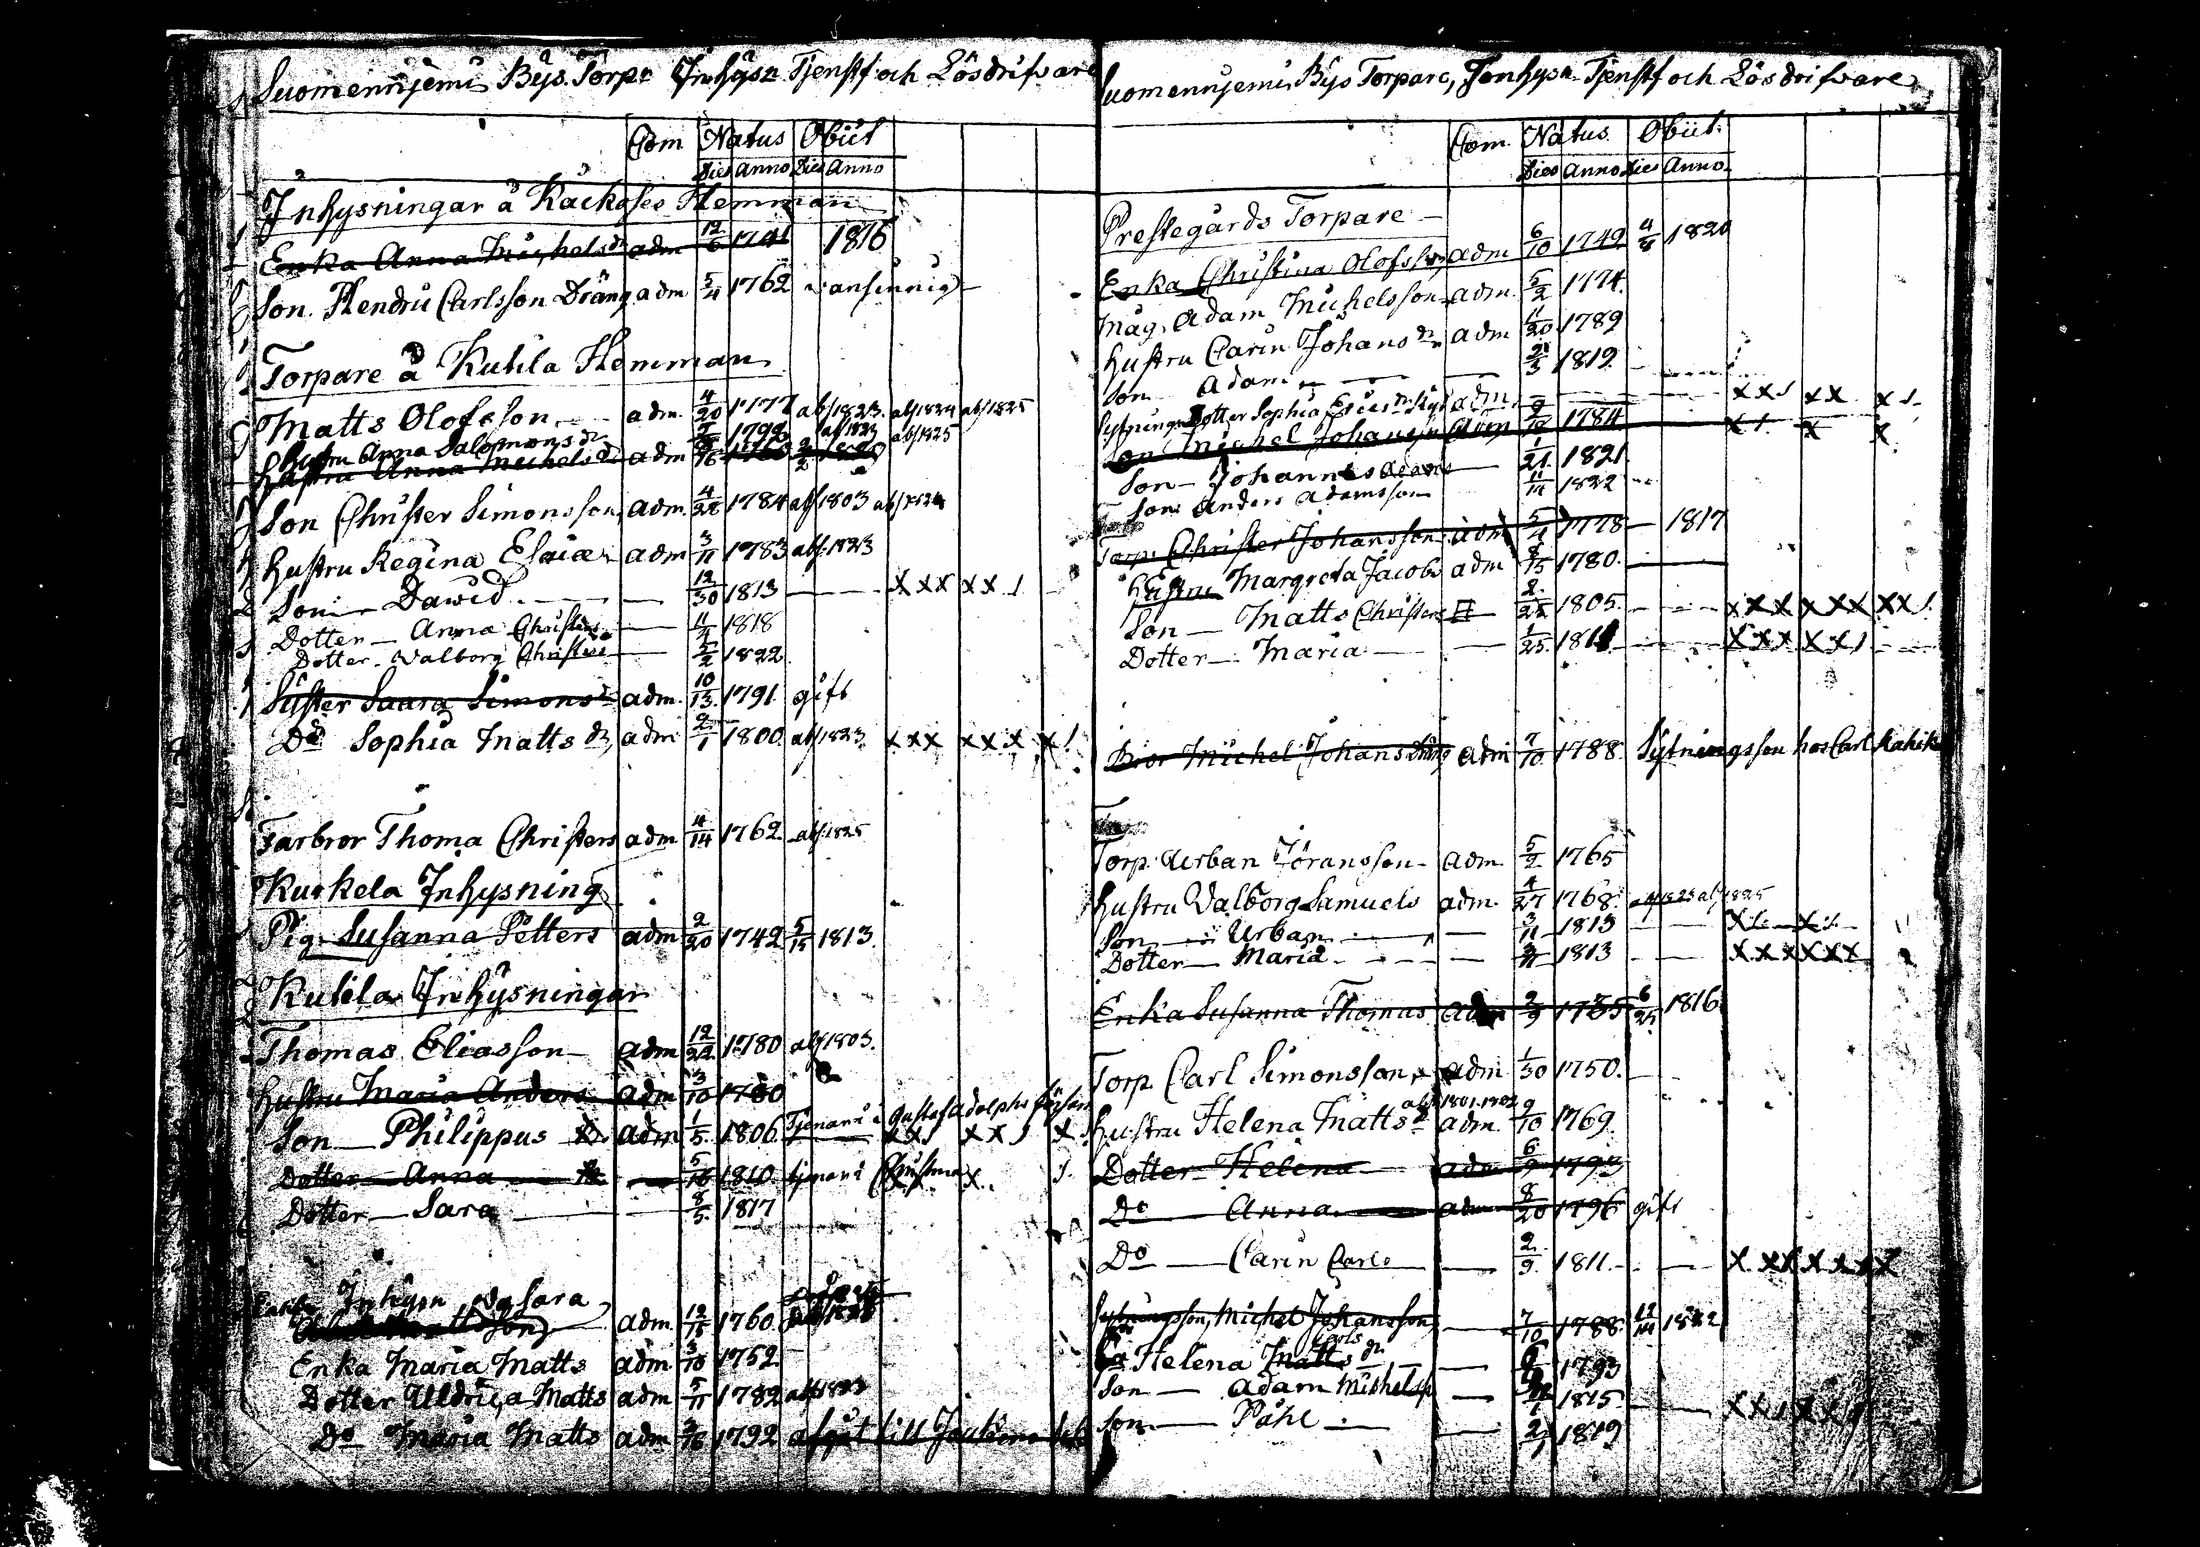 Suomenniemi Bys Torpr Inhysn Tjenstf och Lösdrifvare
Com Natus Obiit
Dies Anno Dies Anno
Inhysningar å Hemman
Enka Anna Michelsdr adm 12/6 1741 1816
Son Hendric Carlsson Dräng adm 5/4 1762 vansinnig
Torpare å Kutila Hemman
Matts Olofsson adm. 4/20 1777 abs 1823. abs 1824 abs 1825
Hustru Anna Salomonsdr 1792 abs 1823 abs 1825
Hustru Anna Michelsdr adm
Son Christer Simonsson adm. 4/22 1784 abs 1803 abs 1824
Hustru Regina Esaiæ adm 3/11 1783 abs 1823
Son Dawid 12/30 1813 xxx xx
Dotter Anna Christers 11/4 1818
Dotter Walborg Christers 5/2 1822
Syster Saara Simonsdr adm. 10/13 1791 gift
Do Sophia Mattsdr adm 2/1 1800 abs 1823 xxx xxx x
Farbror Thoma Christers adm 4/14 1762 abs 1825
Kurkela Inhysning
Pig. Susanna Petters adm 2/20 1742 5/15 1813.
Kutila Inhysningar
Thomas Eliasson adm 12/22 1780 abs 1803.
Hustru Maria Anders adm 3/10 1780
Son Philippus adm 1/5 1806 Tjenar i Gustaf Adolphs
Dotter Anna 5/16 1810. tjenar i Christina
Dotter Sara 8/5 1817
Enkan Inhysn Sara adm. 12/15 1760
Enka Maria Matts adm 3/10 1752
Dotter Uldrica Matts adm 5/11 1782 abs 1823
Do Maria Matts adm 1792 afgåt till
Suomenniemi Bys Torpare, Inhysn Tjenstf och Lösdrifvare
Com. Natus. Obiit.
Dies Anno Dies Anno
Prestegårds Torpare
Enka Christina Olofs adm 6/10 1749 4/8 1820
Måg. Adam Michelsson adm. 5/2 1774.
Hustru Carin Johansdr adm 11/20 1789
Son Adam 1819
Sytnings Dotter Sophia adm xx xx x
Son Michel Johansson adm 1784 x x x
Son Johannes Adams 1/21 1821
Son Anders Adamsson 11/14 1822
Torp. Christer Johansson adm 5/4 1778 1817
Hustru Margreta Jacobs adm 8/15 1780.
Son Matts Christers 2/25 1805. xxx xxx xx
Dotter Maria 1/25 1811 xxx xx
Bror Michel Johans Dräng adm 7/10 1788. Sytningsson hos Carl
Torp. Urban Jöransson adm 5/2 1765
Hustru Valborg Samuels adm. 4/27 1768. abs 1823 abs 1825
Son Urban 3/11 1813 x x
Dotter Maria 3/11 1813 xxxxxx
Enka Susanna Thomas adm 2/9 1735 6/25 1816
Torp. Carl Simonsson adm 1/30 1750.
Hustru Helena Mattsdr abs 1801. 1802 adm. 9/10 1769.
Dotter Helena adm 6/9 1793
Do Anna adm 8/20 1796 gift
Do Carin Carls 2/9 1811. x xx x x x x
Sytningsson, Michel Johansson 7/10 1788. 12/14 1822
Helena Matts Carlsdr 6/9 1793
Son Adam Michelss 1815
Son Påhl 2/1 1819